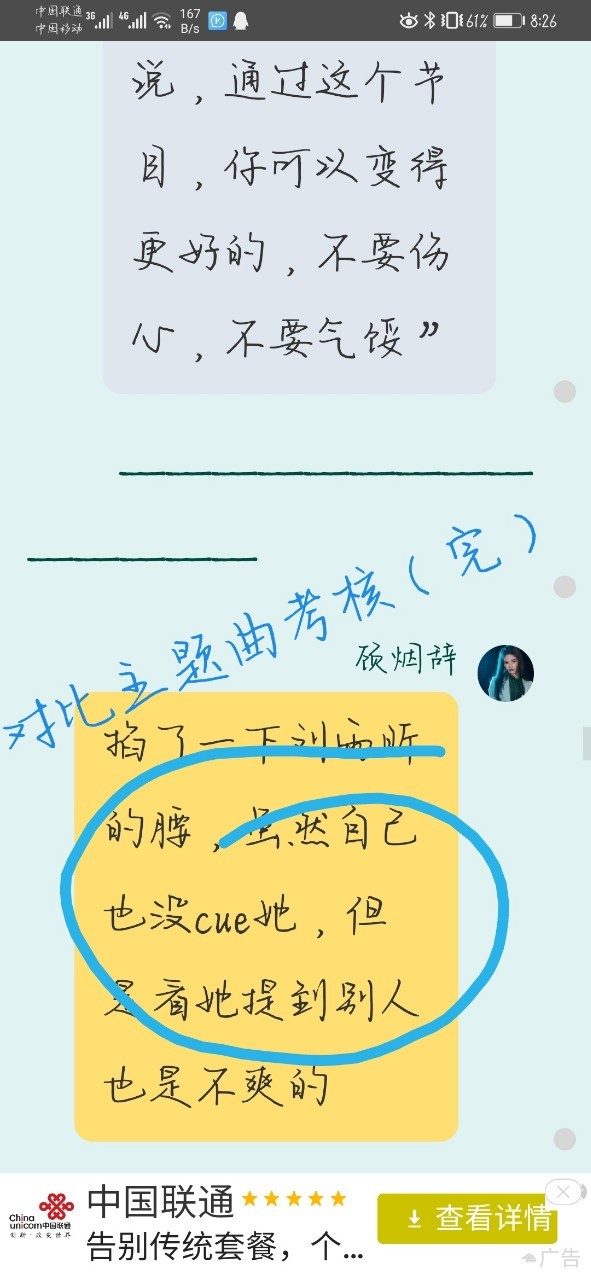 中国联通 3G 4G 167 B/s 61% 8:26
中国移动
说，通过这个节
目，你可以变得
更好的，不要伤
心，不要气馁”
对比主题曲考核(完)
顾烟辞
掐了一下刘雨昕
的腰，虽然自己
也没cue她，但
是看她提到别人
也是不爽的
China unicom中国联通
创新·改变世界
中国联通
告别传统套餐，个...
查看详情
广告